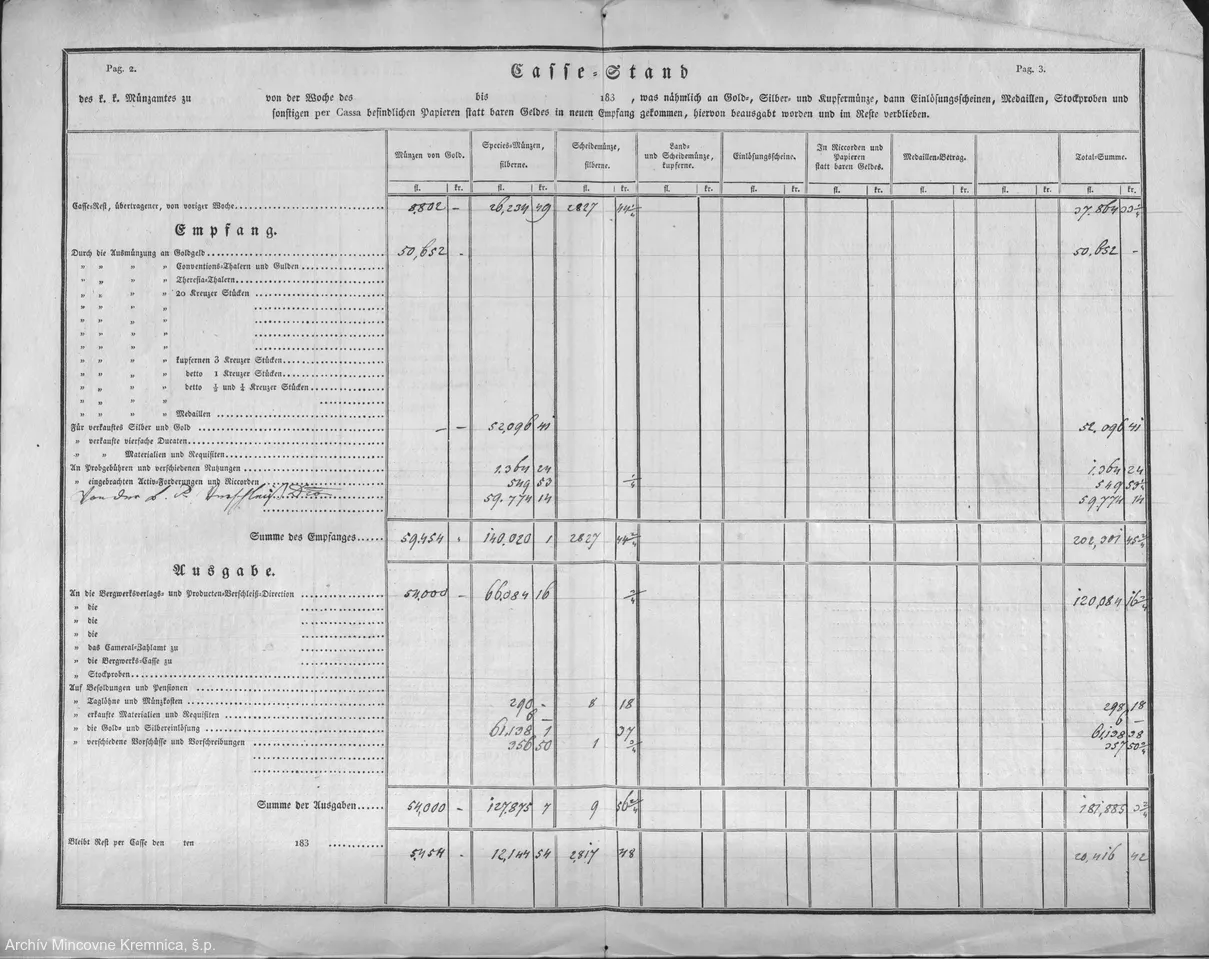 Pag. 2.
Casse-Stand
Pag. 3.
des k. k. Münzamtes zu von der Woche des bis 183 , was nähmlich an Gold-, Silber- und Kupfermünze, dann Einlösungsscheinen, Medaillen, Stockproben und
sonstigen per Cassa befindlichen Papieren statt baren Geldes in neuen Empfang gekommen, hiervon beausgabt worden und im Reste verblieben.
Münzen von Gold. Species-Münzen, silberne. Scheidemünze, silberne. Land- und Scheidemünze, kupferne. Einlösungsscheine. In Riccorden und Papieren statt baren Geldes. Medaillen-Betrag. Total-Summe.
fl. kr. fl. kr. fl. kr. fl. kr. fl. kr. fl. kr. fl. kr. fl. kr. fl. kr.
Casse-Rest, übertragener, von voriger Woche 8,802 - 26,234 49 2827 44 2/4 37.864 33 2/4
Empfang.
Durch die Ausmünzung an Goldgeld 50,652 - 50,652 -
" " " " Conventions-Thalern und Gulden
" " " " Theresia-Thalern
" " " " 20 Kreuzer Stücken
" " " "
" " " "
" " " "
" " " "
" " " " kupfernen 3 Kreuzer Stücken
" " " " detto 1 Kreuzer Stücken
" " " " detto ½ und ¼ Kreuzer Stücken
" " " "
" " " " Medaillen
Für verkauftes Silber und Gold - - 52,096 41 52,096 41
" verkaufte vierfache Ducaten
" " Materialien und Requisiten
An Probgebühren und verschiedenen Nutzungen 1.364 24 1.364 24
" eingebrachten Activ-Forderungen und Riccorden 549 53 1/4 549 53 1/4
Von der k. k. 59.774 14 59,774 14
Summe des Empfanges 59,454 - 140,020 1 2827 44 3/4 202,301 45 3/4
Ausgabe.
An die Bergwerksverlags- und Producten-Verschleiß-Direction 54,000 - 66,084 16 3/4 120,084 16 3/4
" die
" die
" die
" das Cameral-Zahlamt zu
" die Bergwerks-Casse zu
" Stockproben
Auf Besoldungen und Pensionen
" Taglöhne und Münzkosten 290 - 8 18 298 18
" erkaufte Materialien und Requisiten 6 - 6 -
" die Gold- und Silbereinlösung 61,138 1 37 61,138 38
" verschiedene Vorschüsse und Vorschreibungen 356 50 1 3/4 357 50 3/4
Summe der Ausgaben 54,000 - 127,875 7 9 56 3/4 181,885 3 3/4
Bleibt Rest per Casse den ten 183 5,454 - 12,144 54 2,817 48 20,416 42
Archív Mincovne Kremnica, š.p.